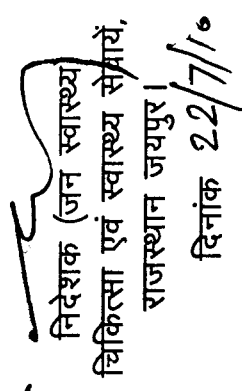 निदेशक (जन स्वास्थ्य)
चिकित्सा एवं स्वास्थ्य सेवायें,
राजस्थान जयपुर।
दिनांक 22/7/10